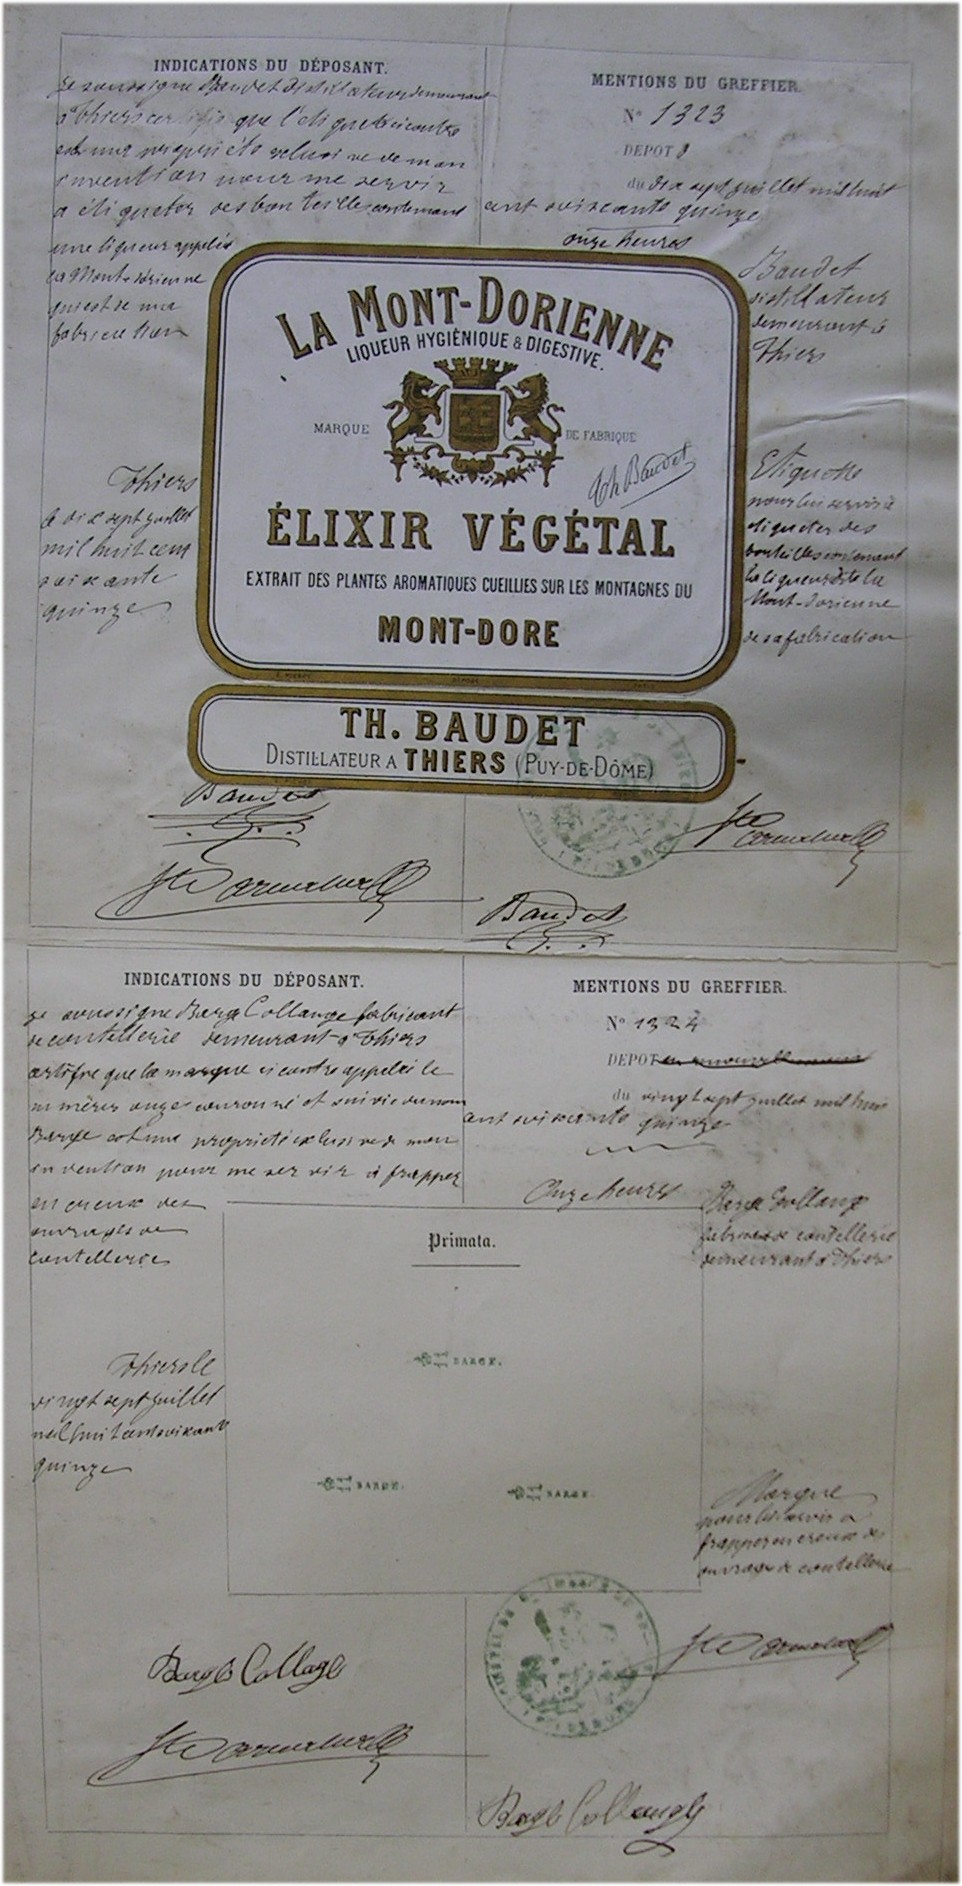 INDICATIONS DU DÉPOSANT.
je soussigne Baudet distillateur demeurant
a Thiers certifie que l'etiquette ci contre
est une propriété exclusive de mon
invention pour me servir
a étiqueter des bouteilles contenant
une liqueur appelée
la Mont-dorienne
qui est de ma
fabrication
Thiers
le dix sept juillet
mil huit cent
soixante
quinze
MENTIONS DU GREFFIER.
N° 1323
DEPOT
du dix sept juillet mil huit
cent soixante quinze
onze heures
Baudet
distillateur
demeurant à
Thiers
Etiquette
pour lui servir à
etiqueter des
bouteilles contenant
la liqueur dite la
Mont-dorienne
de sa fabrication
LA MONT-DORIENNE
LIQUEUR HYGIÉNIQUE & DIGESTIVE.
MARQUE DE FABRIQUE
Th Baudet
ÉLIXIR VÉGÉTAL
EXTRAIT DES PLANTES AROMATIQUES CUEILLIES SUR LES MONTAGNES DU
MONT-DORE
TH. BAUDET
DISTILLATEUR A THIERS (PUY-DE-DÔME)
Baudet
Baudet
INDICATIONS DU DÉPOSANT.
je soussigne Barge Collange fabricant
de coutellerie demeurant à Thiers
certifie que la marque ci contre appelée le
numéro onze couronné et suivie du nom
Barge est une propriété exclusive de mon
invention pour me servir à frapper
en creux des
ouvrages de
coutellerie
Thiers le
vingt sept juillet
mil huit cent soixante
quinze
MENTIONS DU GREFFIER.
N° 1324
DEPOT
du vingt sept juillet mil huit
cent soixante quinze
Onze heures
Barge Collange
fabricant de coutellerie
demeurant à Thiers
Primata.
11 BARGE.
11 BARGE.
11 BARGE.
Marque
pour lui servir a
frapper en creux des
ouvrages de coutellerie
Barge Collange
Barge Collange